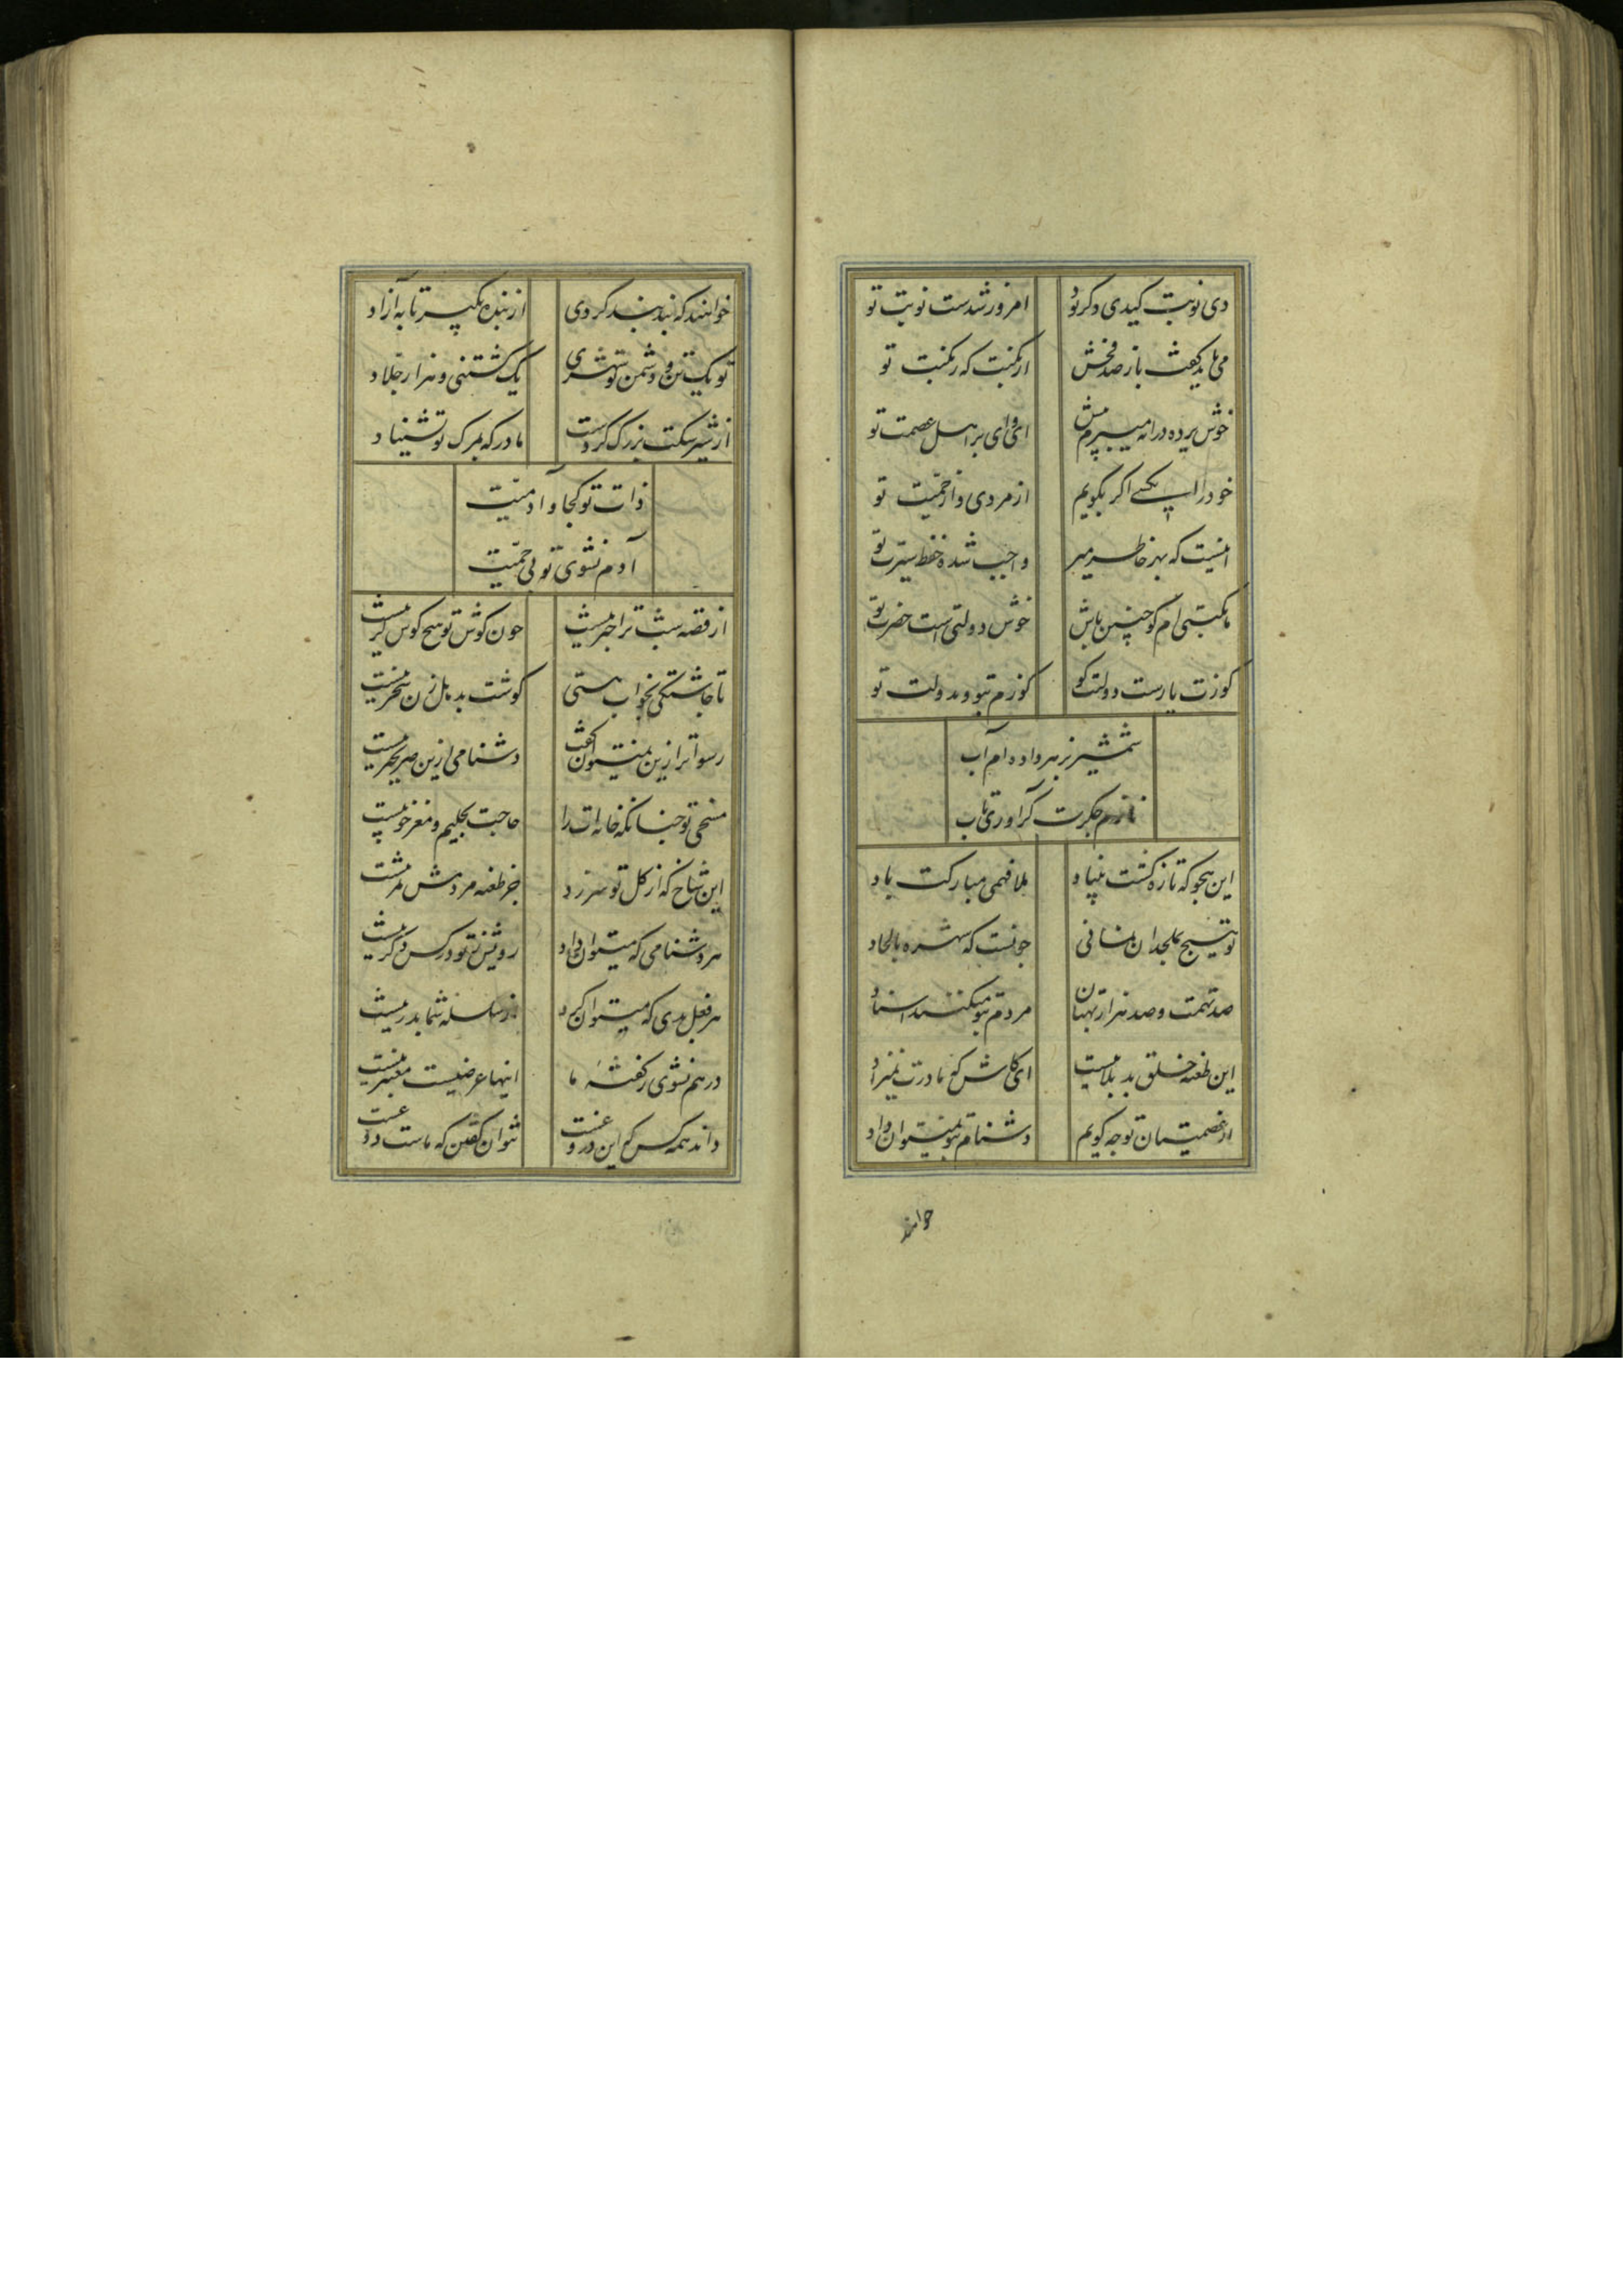 دی نوبت کیدی دکر بود امروز شدست نوبت تو
می باید کفت باز صد فحش از نکبت که ز نکبت تو
خوش پرده درانه میبرم پیش ای وای بر اهل عصمت تو
خود را بکسی اکر بکویم از مردی و از حمیت تو
اینست که بهر خاطر میر واجب شده حفظ سیرت تو
با نکبتی ام کو چنین باش خوش دولتی است حضرت تو
کو زت یارست دولت کو کوزم بتو و بدولت تو
شمشیر بزهر داده ام آب
نازم جکرت کر اوری تاب
این هجو که تازه کشت بنیاد ملا فهمی مبارکت باد
تو هیچ بملحدان نمانی چونست که شهره بالحاد
صد تهمت و صد هزار بهتان مردم بتو میکنند اسناد
این طعنه خلق بد بلاییست ای کاش که مادرت نمیزاد
از عصمتیان تو چه کویم دشنام بتو نمیتوان داد
خوانند
خوانند که بد کردی از بنده بکیر تا به آزاد
تو یک تن و دشمن تو شهری یک کشتنی و هزار جلاد
از شیر سکت بزرک کردست مادر که بمرک تو نشیناد
ذات تو کجا و آدمیت
آدم نشوی تو بی حمیت
از قصه شب ترا خبر نیست چون کوش تو هیچ کوش کر نیست
تا چاشتکی بخواب مستی کوشت بدهل زن سحر نیست
رسواتر ازین نمیتوان کفت دشنامی ازین صریحتر نیست
منحی تو چنانکه خانه ات را حاجت بکلیم و مغز خر نیست
این شاخ که از کل تو سر زد جز طعنه مردمش ثمر نیست
هر دشنامی که میتوان داد روشن تو در کس دکر نیست
هر فعل بدی که میتوان کرد از سلسله شما بدر نیست
در هم نشوی ز کفتهٔ ما اینها عرضیست معتبر نیست
داند همه کس که این دروغست نتوان کفتن که ماست دوغست